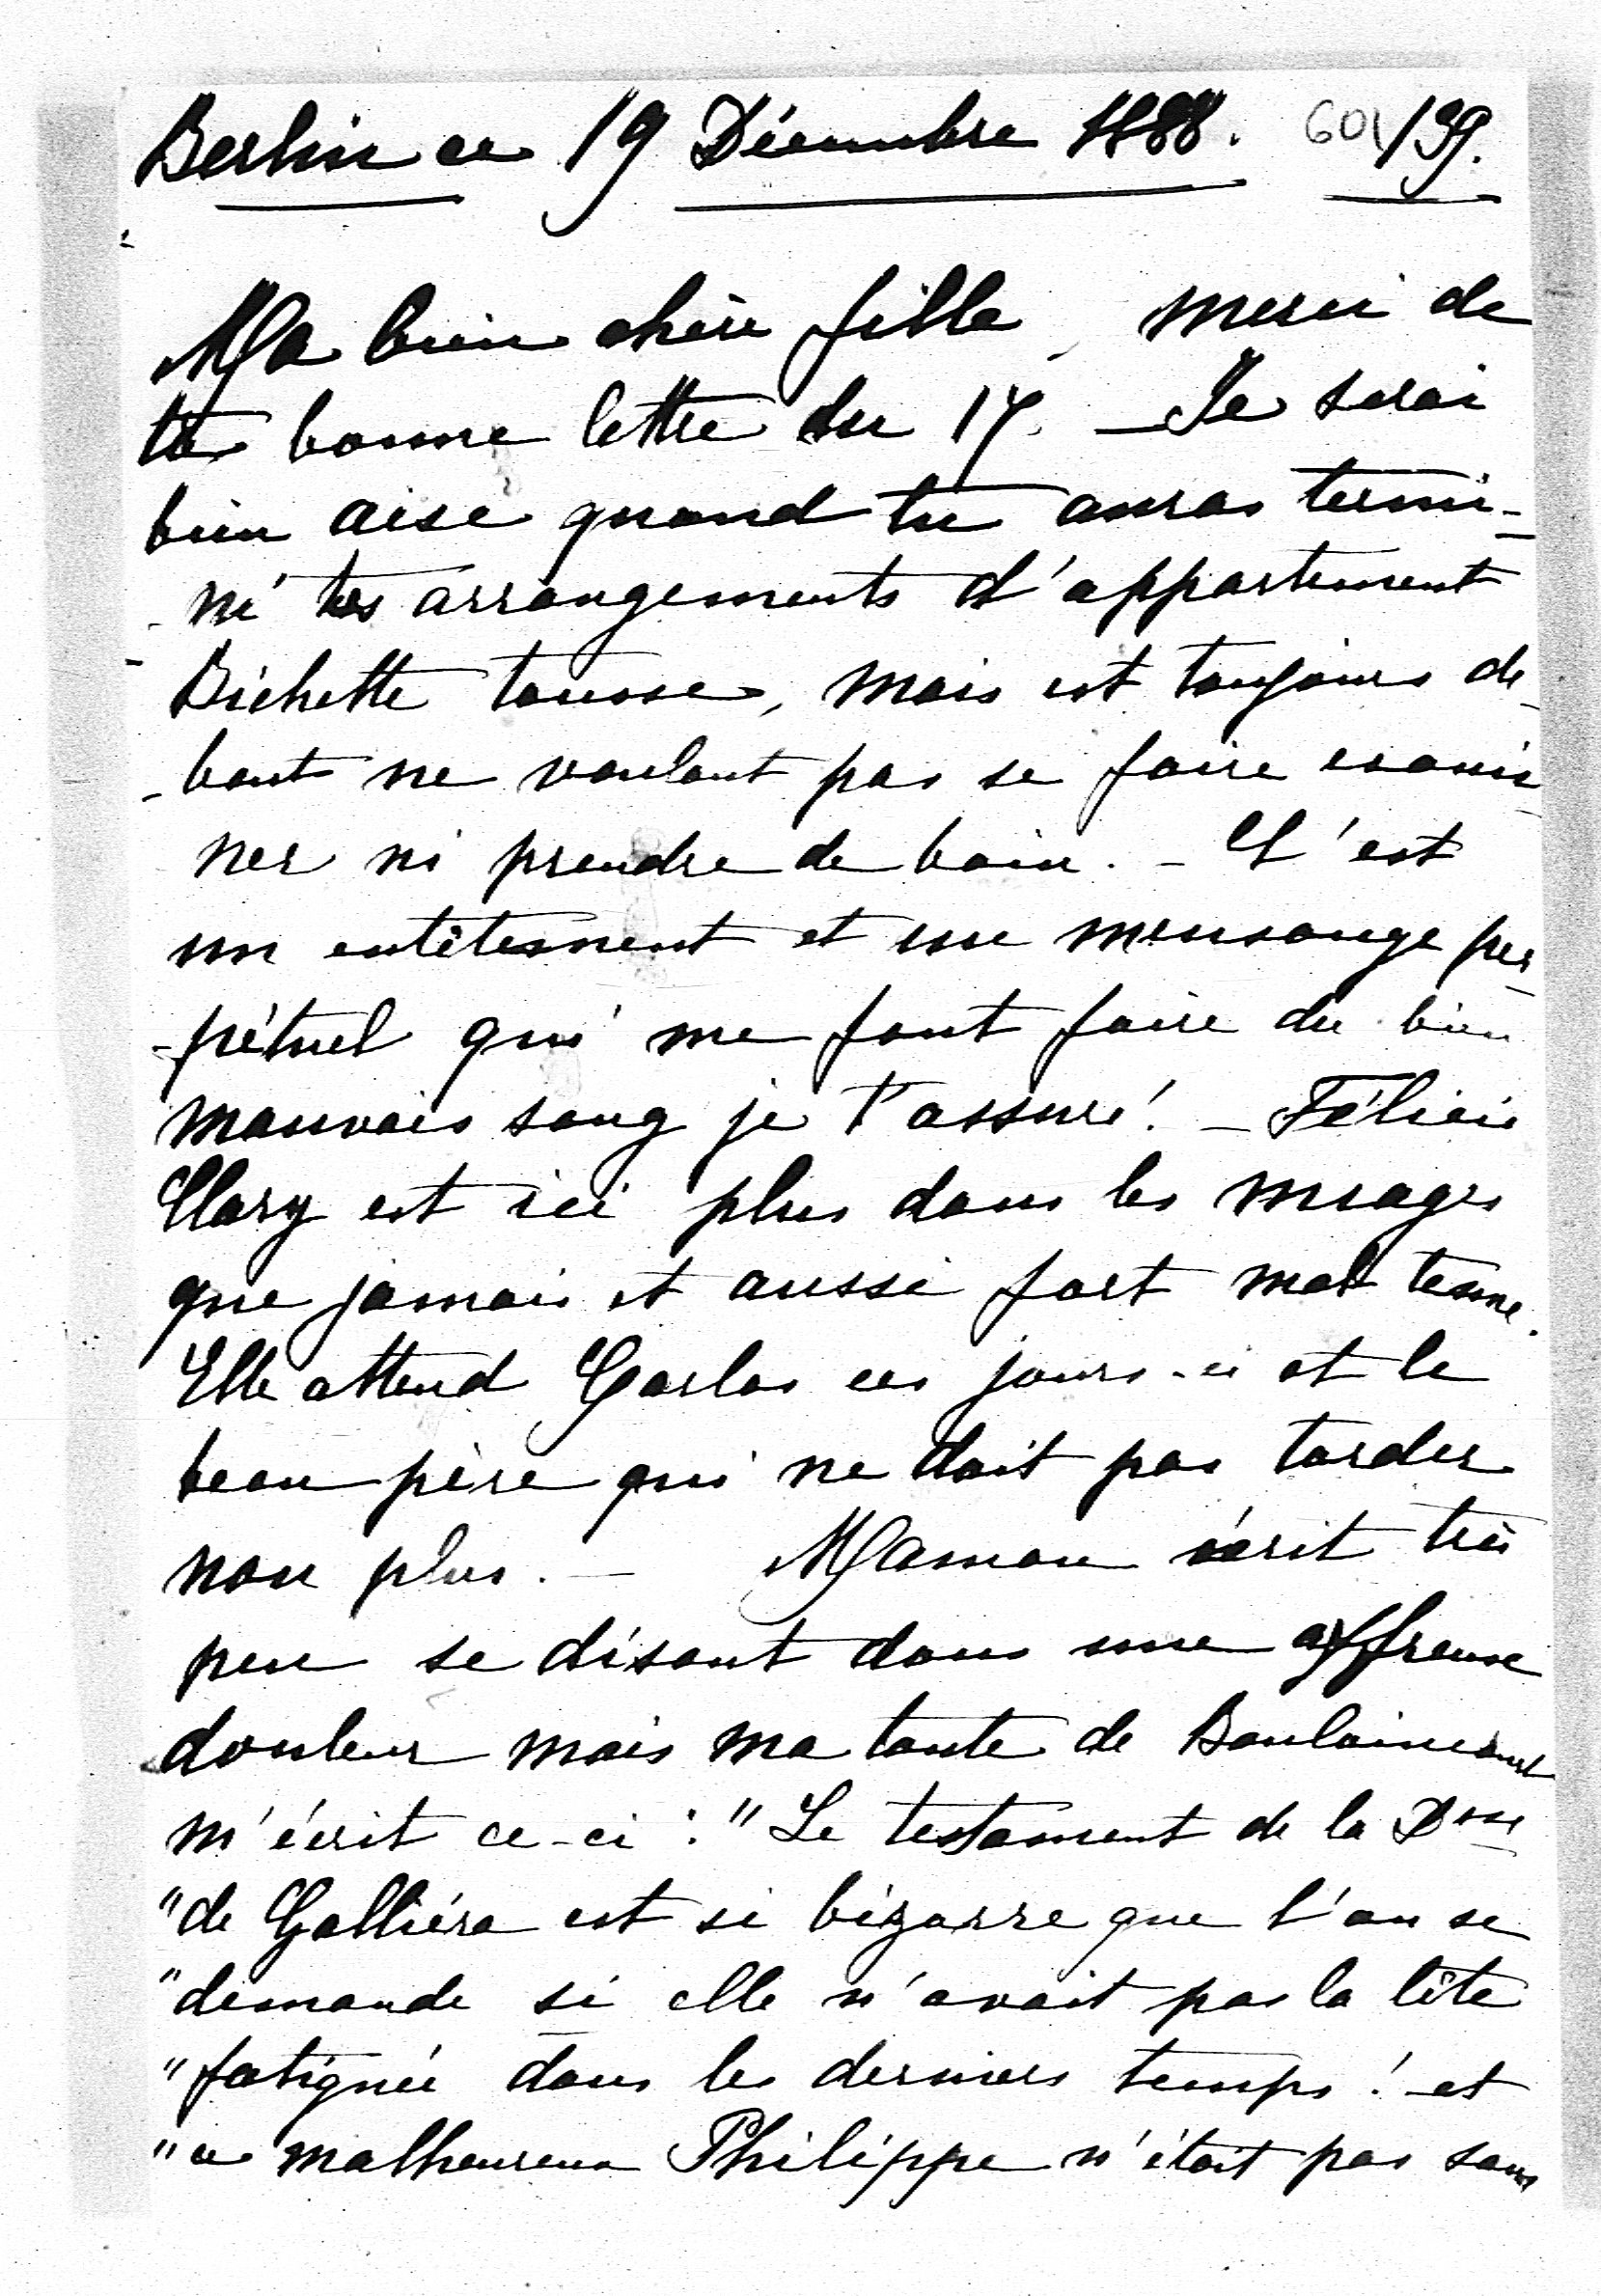 Berlin ce 19 Décembre 1888. 601/39.
Ma bien chère fille, merci de
ta bonne lettre du 17. – Je serai
bien aise quand tu auras termi-
-né tes arrangements d'appartement
Bichette tousse, mais est toujours de-
-bout ne voulant pas se faire exami-
ner ni prendre de bain. – C'est
un entêtement et un mensonge per-
-pétuel qui me font faire du bien
mauvais sang je t'assure! – Félicie
Clary est ici plus dans les nuages
que jamais et aussi fort mal tenue.
Elle attend Carlos ces jours-ci et le
beau père qui ne doit pas tarder
non plus. – Maman écrit très
peu se disant dans une affreuse
douleur mais ma tante de
m'écrit ce-ci : "Le testament de la Dsse
"de Galliéra est si bizarre que l'on se
"demande si elle n'avait pas la tête
"fatiguée dans les derniers temps! et
"ce malheureux Philippe n'était pas sans